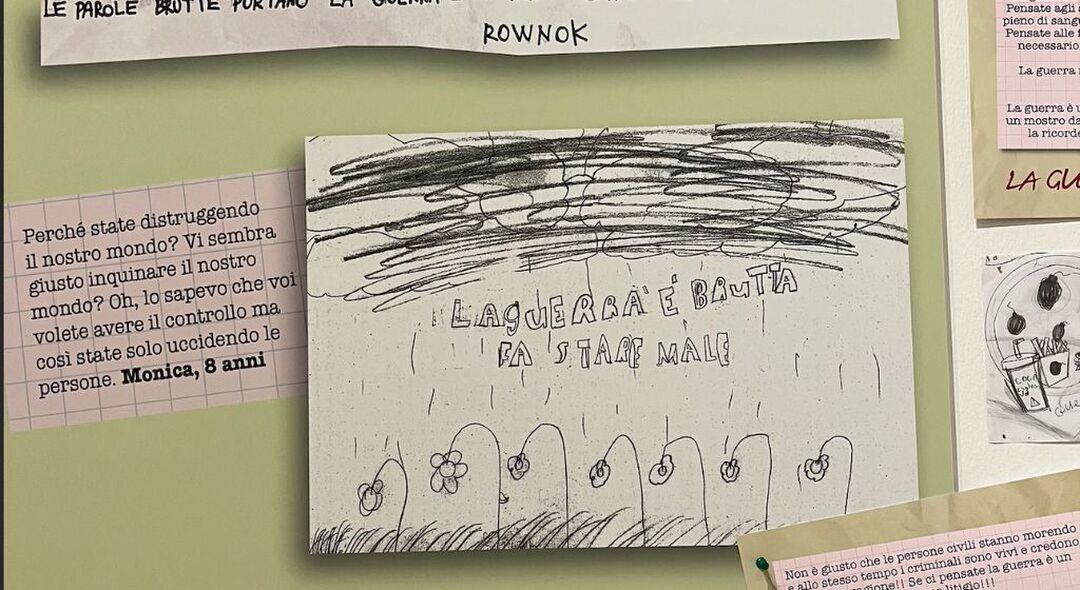 LE PAROLE BRUTTE PORTANO LA GUERRA
ROWNOK
Perché state distruggendo
il nostro mondo? Vi sembra
giusto inquinare il nostro
mondo? Oh, lo sapevo che voi
volete avere il controllo ma
così state solo uccidendo le
persone. Monica, 8 anni
LA GUERRA É BRUTTA
FA STARE MALE
Pensate agli
pieno di sang
Pensate alle
necessario
La guerra
La guerra è
un mostro da
la ricorde
LA GU
COCA
Non è giusto che le persone civili stanno morendo
e allo stesso tempo i criminali sono vivi e credono
agione!! Se ci pensate la guerra è un
litigio!!!